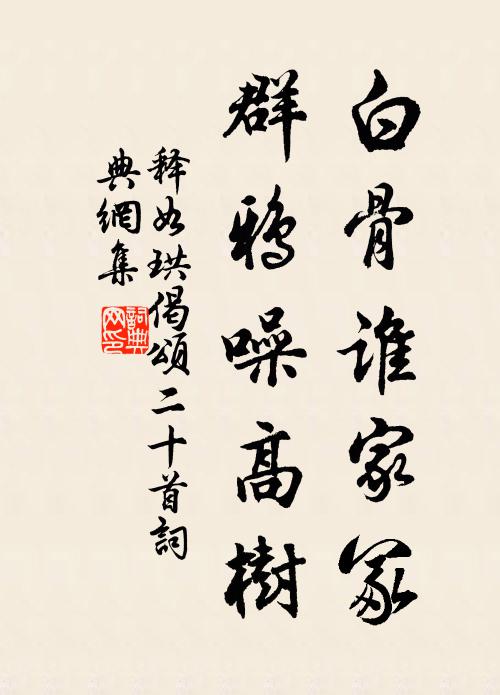 白骨谁家冢
群鸦噪高樹
释如珙偈頌二十首詞
典網集
詞典网印